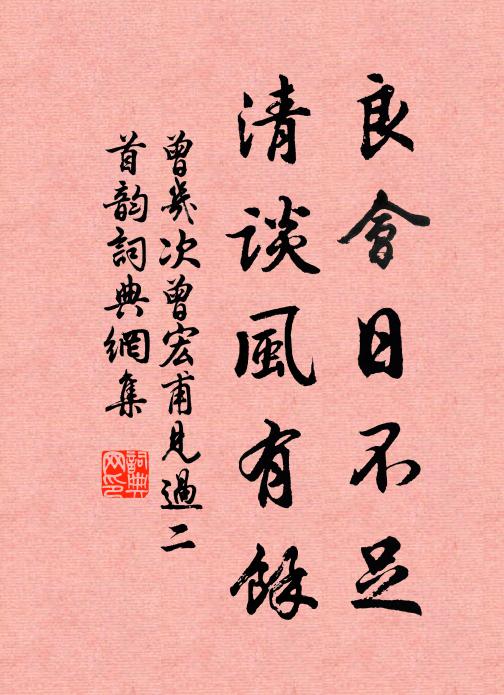 良會日不足
清談風有餘
曾幾次曾宏甫見過二
首韵詞典網集
詞典
网印